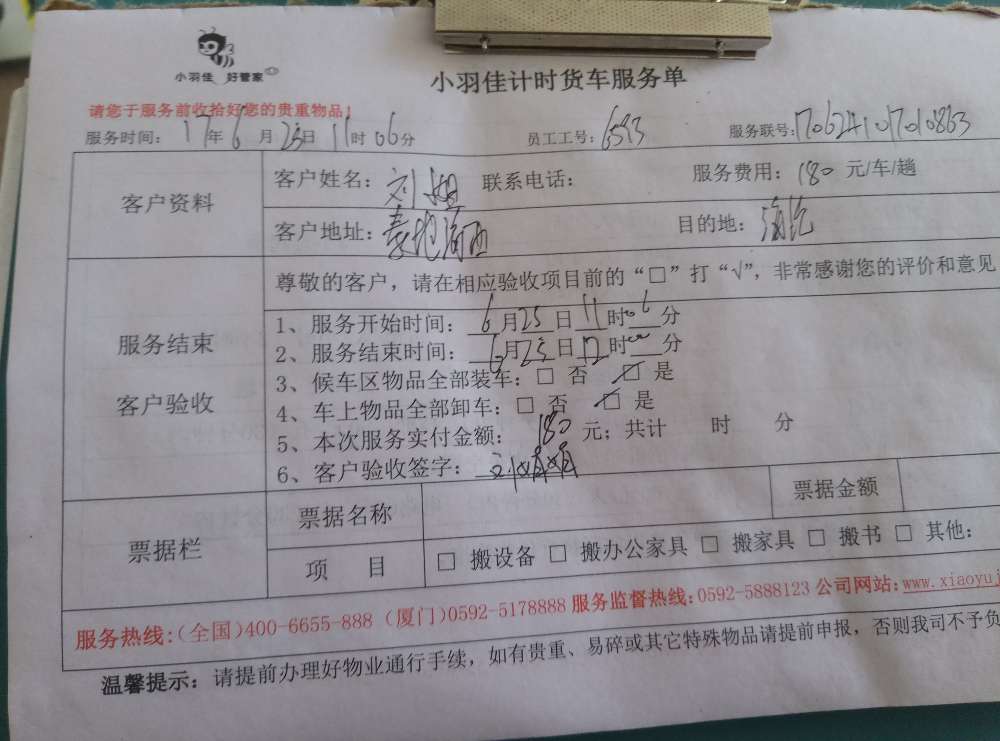 小羽佳 好管家
小羽佳计时货车服务单
请您于服务前收拾好您的贵重物品！
服务时间： 17年6月25日11时06分 员工工号：6593 服务联号：1706241017010863
客户资料
客户姓名：刘 联系电话： 服务费用：180元/车/趟
客户地址：泰地海西 目的地：海沧
服务结束
客户验收
尊敬的客户，请在相应验收项目前的“□”打“√”，非常感谢您的评价和意见
1、服务开始时间：6月25日11时06分
2、服务结束时间：6月25日12时00分
3、候车区物品全部装车：□ 否 ☑ 是
4、车上物品全部卸车：□ 否 ☑ 是
5、本次服务实付金额：180元；共计 时 分
6、客户验收签字：刘
票据栏
票据名称 票据金额
项 目 □ 搬设备 □ 搬办公家具 □ 搬家具 □ 搬书 □ 其他：
服务热线：(全国)400-6655-888 (厦门)0592-5178888 服务监督热线：0592-5888123 公司网站：www.xiaoyuj
温馨提示：请提前办理好物业通行手续，如有贵重、易碎或其它特殊物品请提前申报，否则我司不予负